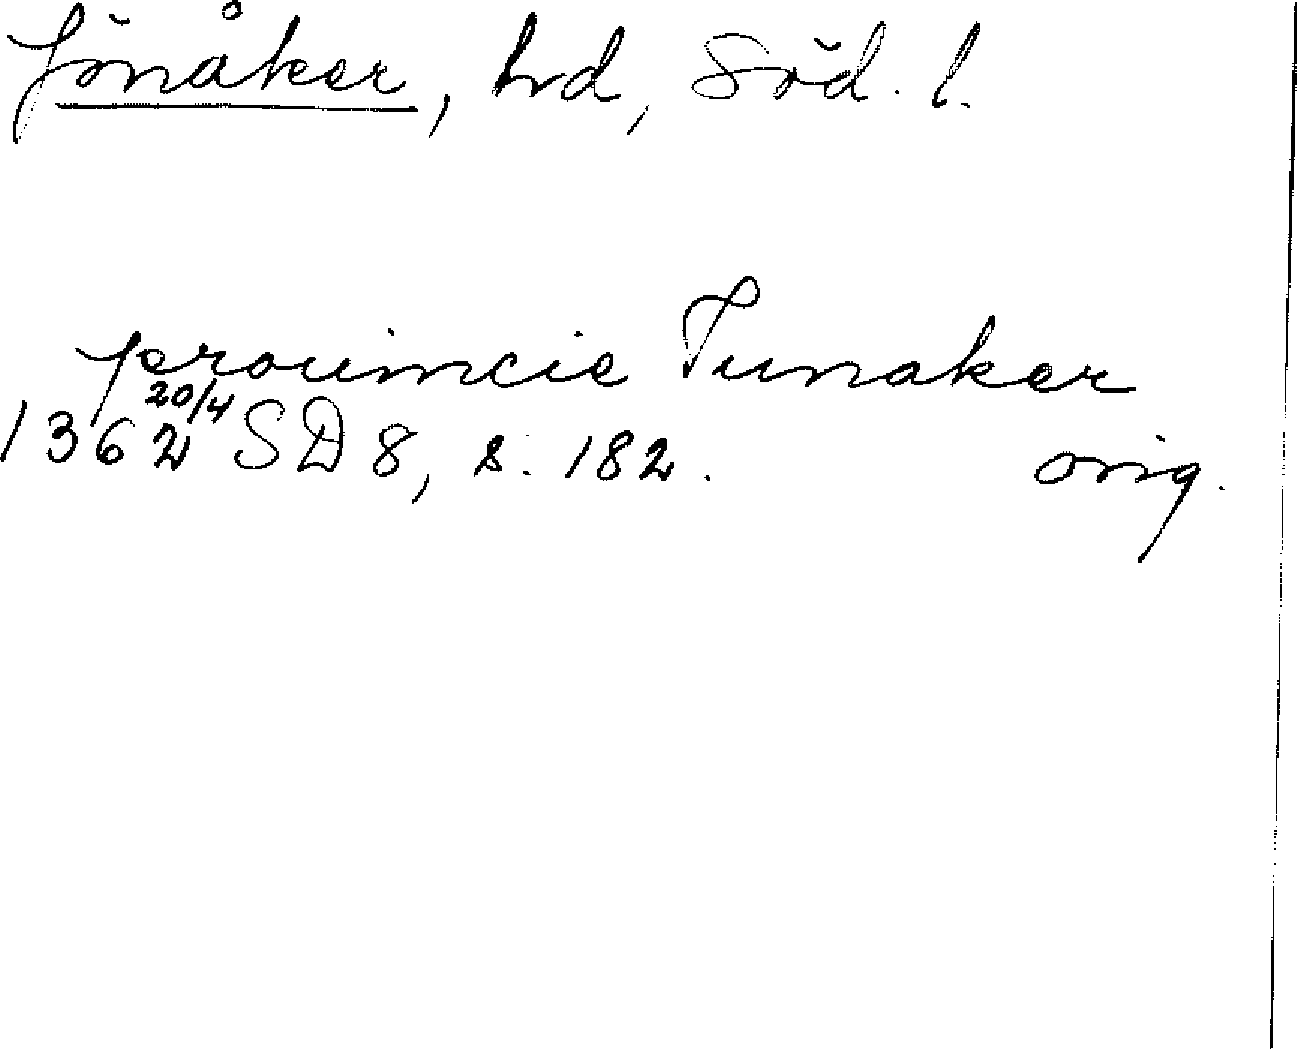 Jönåker, hd, Söd. l.
prouincie Junaker
1362 20/4 SD 8, s. 182. orig.